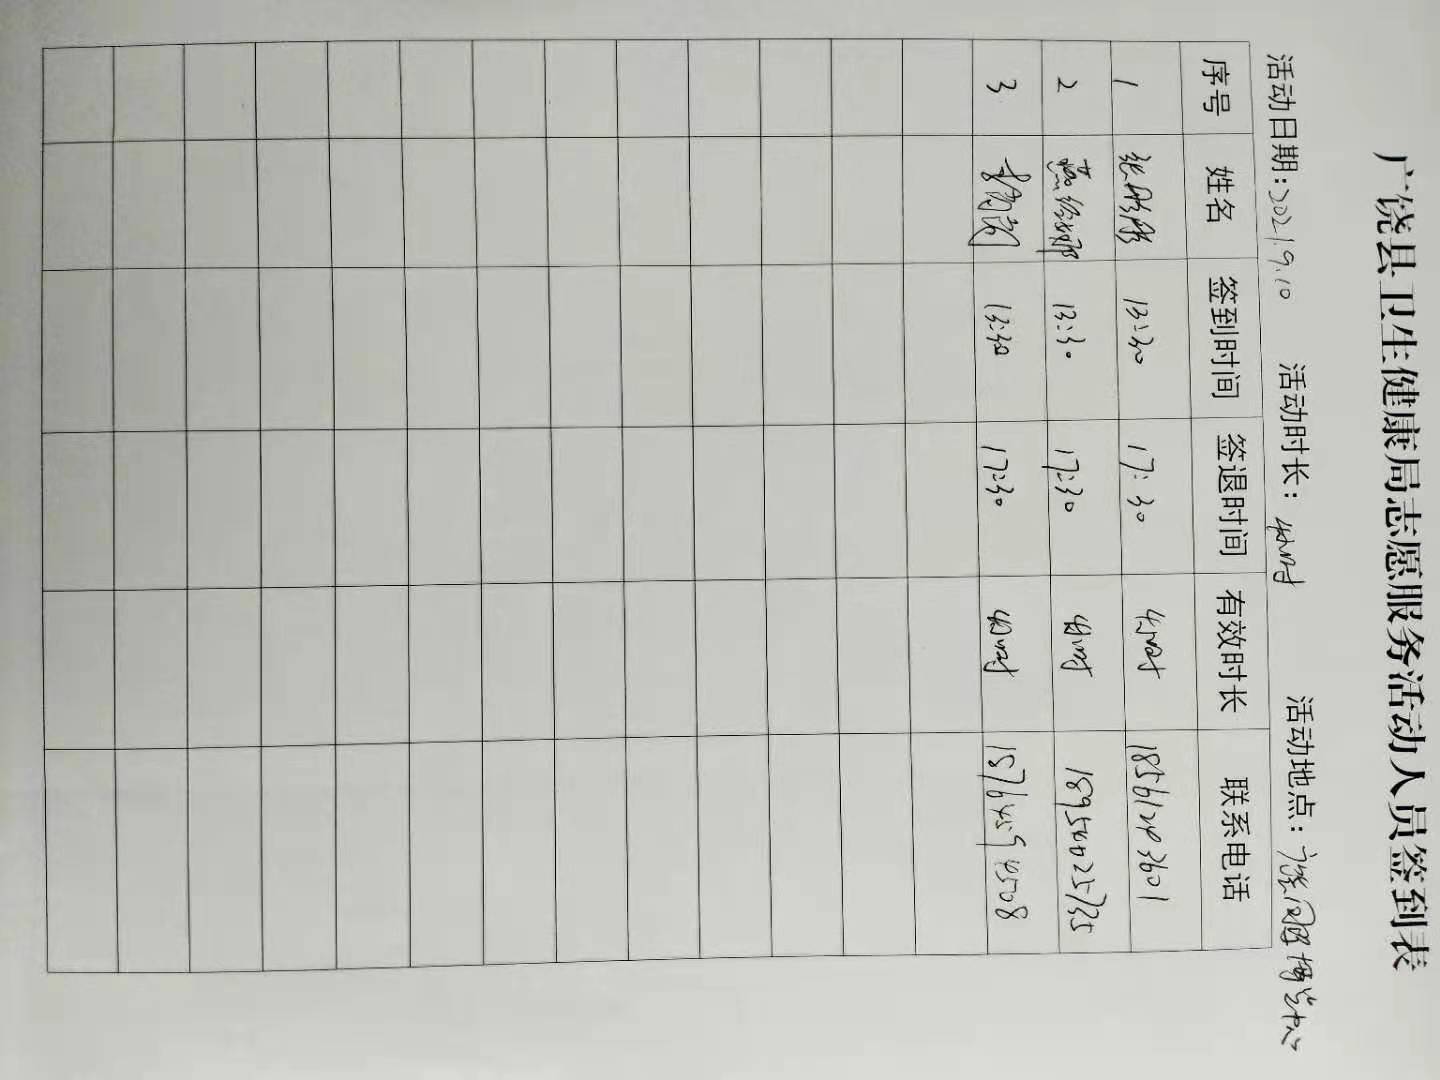 广饶县卫生健康局志愿服务活动人员签到表
活动日期:2021.9.10 活动时长: 4小时 活动地点: 广饶国际博览中心
序号 姓名 签到时间 签退时间 有效时长 联系电话
1 张彤彤 13:30 17:30 4小时 18561243601
2 13:30 17:30 4小时 18954025735
3 13:30 17:30 4小时